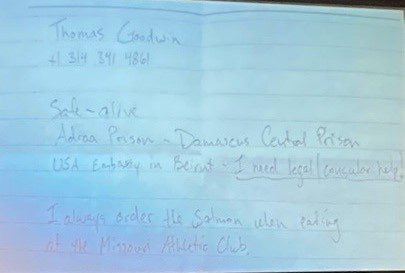 Thomas Goodwin
+1 314 341 4861
Safe-alive
Adraa Prison - Damascus Central Prison
USA Embassy in Beirut - I need legal/consular help.
I always order the Salmon when eating
at the Missouri Athletic Club.